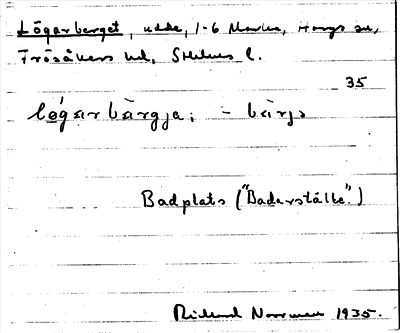 Lögarberget, udde, 1-6 Marka, Hargs sn,
Frösåkers hd, Sthlms l.
35
lógarbàrgja; - bàrjs
Badplats ("Badarställe".)
Rickard Norrman 1935.